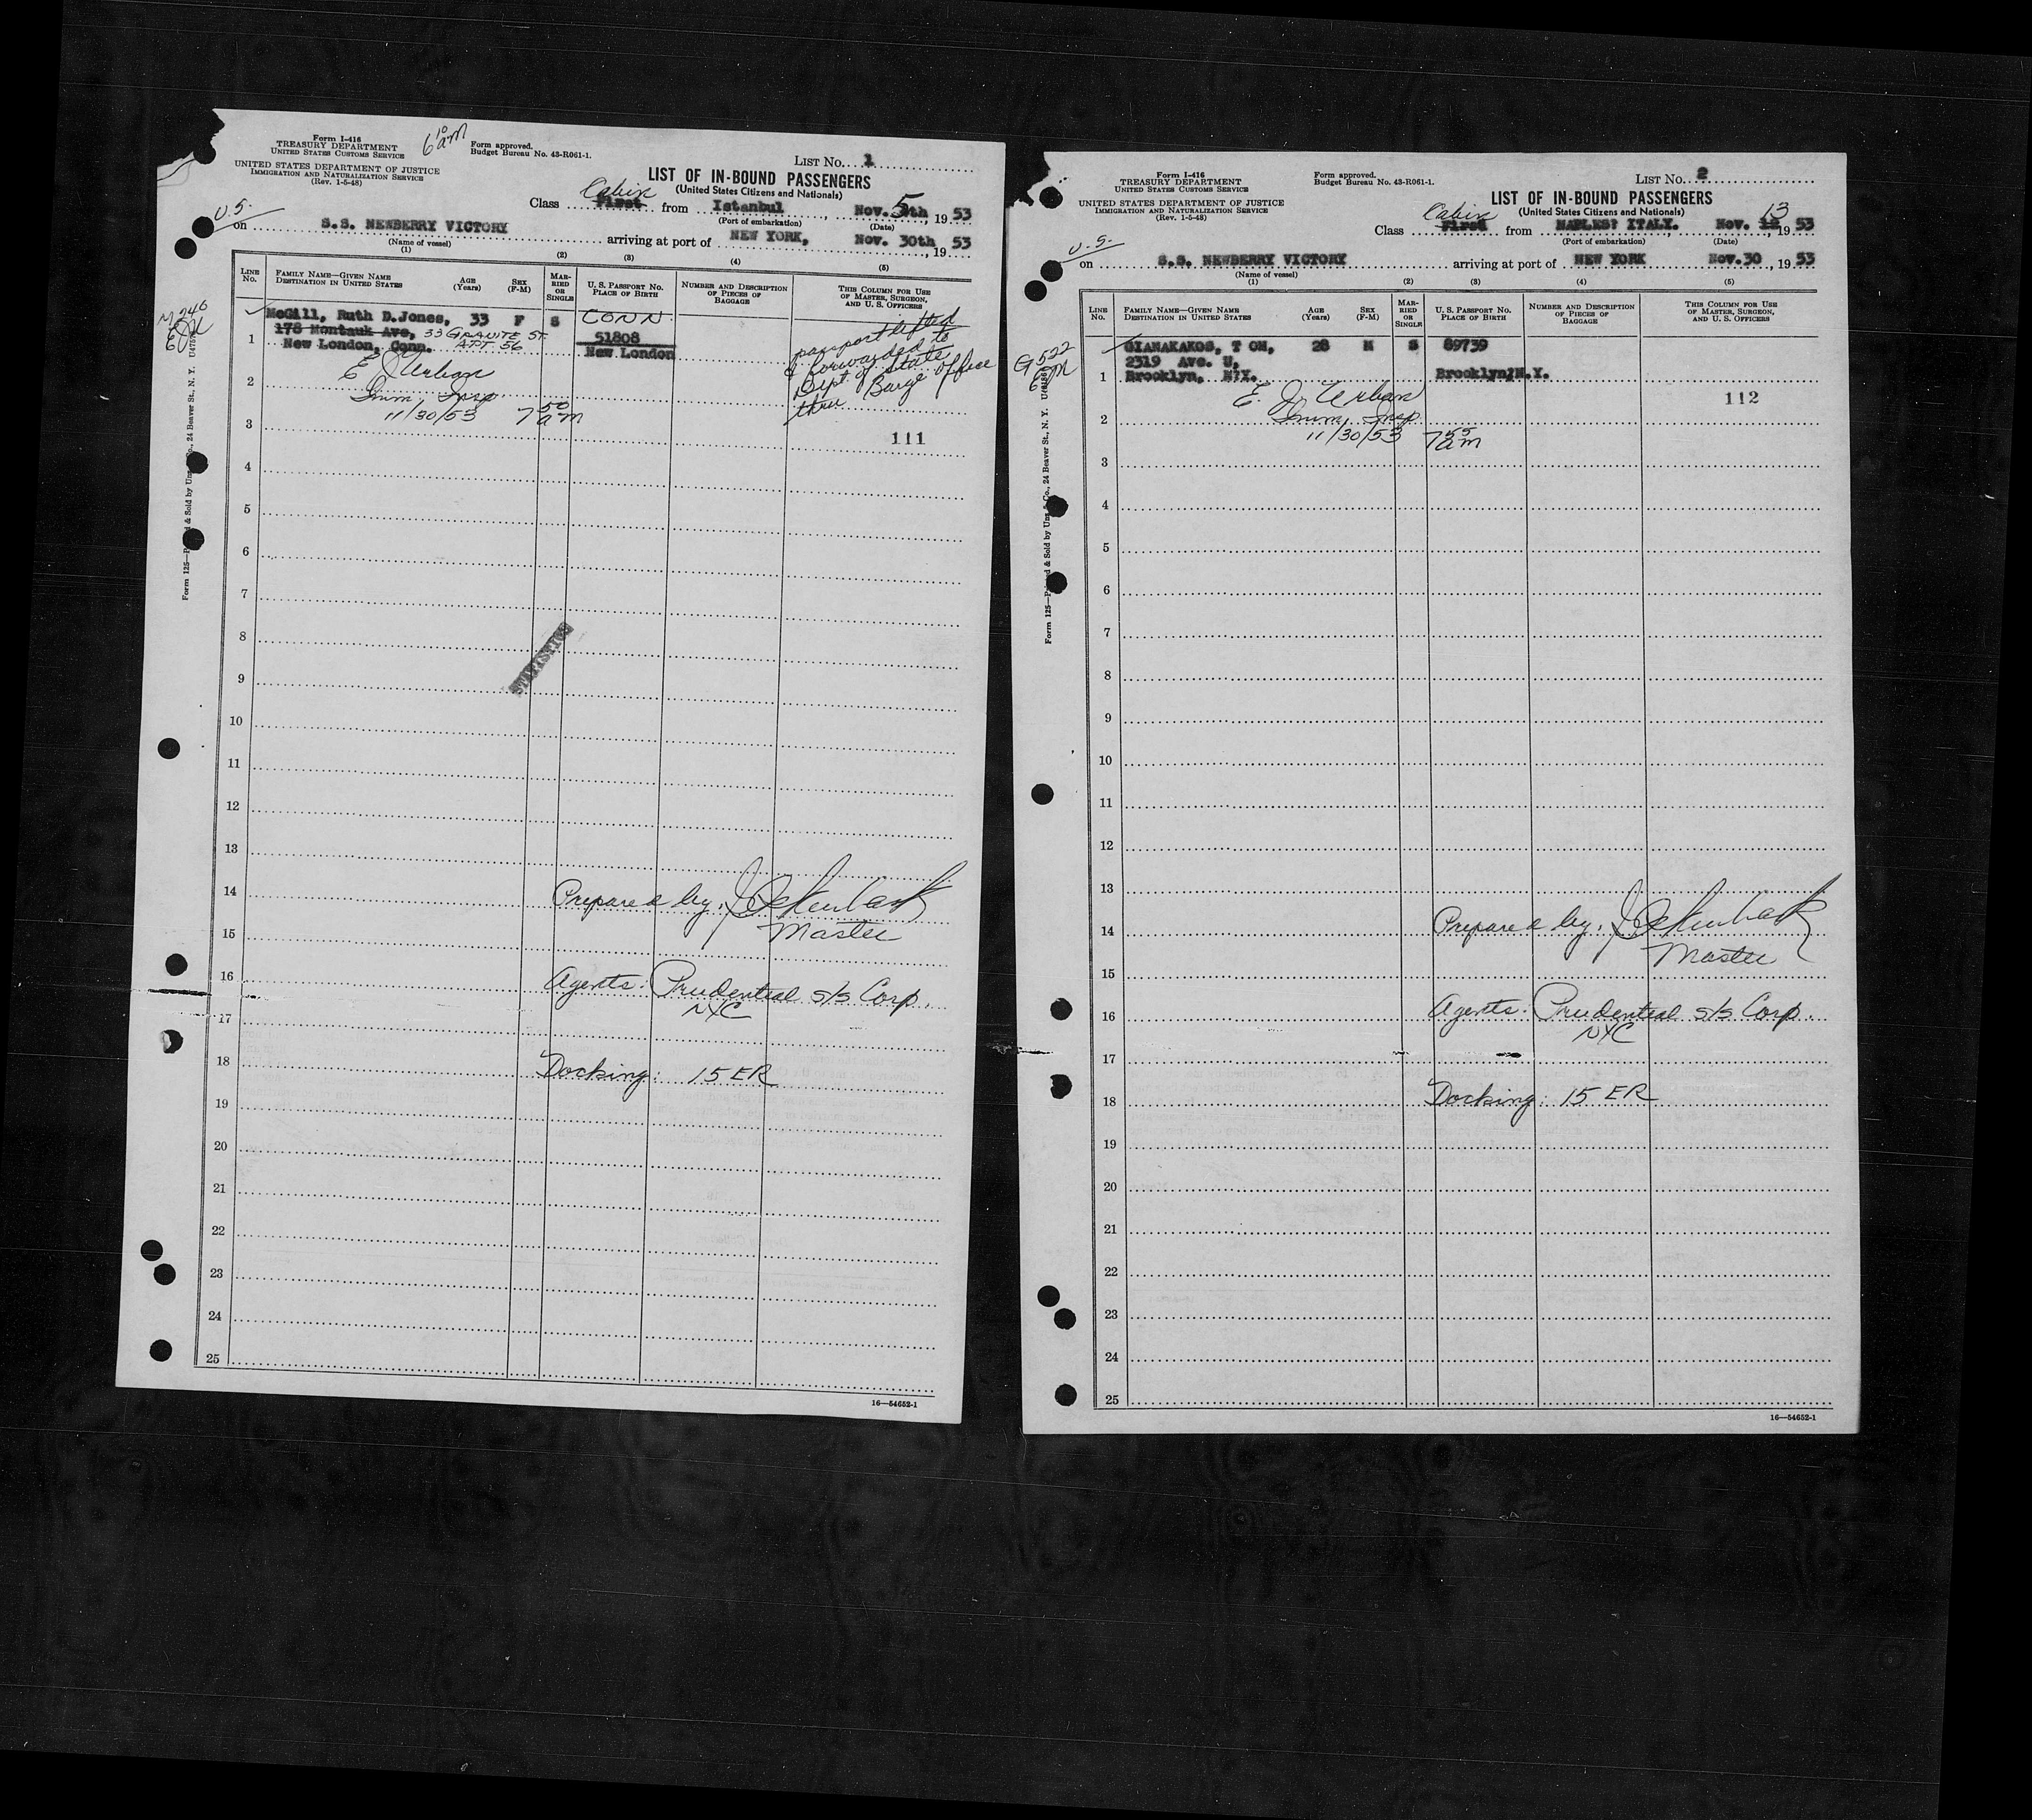 Form I-416
TREASURY DEPARTMENT
UNITED STATES CUSTOMS SERVICE
UNITED STATES DEPARTMENT OF JUSTICE
IMMIGRATION AND NATURALIZATION SERVICE
(Rev. 1-5-48)
6 10 am
Form approved.
Budget Bureau No. 43-R061-1.
LIST No. 1
LIST OF IN-BOUND PASSENGERS
(United States Citizens and Nationals)
Cabin
Class First from Istanbul, Nov. 5th, 1953
(Port of embarkation) (Date)
U.S.
on S.S. NEWBERRY VICTORY arriving at port of NEW YORK, Nov. 30th, 1953
(Name of vessel)
(1) (2) (3) (4) (5)
LINE No.
FAMILY NAME—GIVEN NAME DESTINATION IN UNITED STATES
AGE (Years)
SEX (F-M)
MARRIED OR SINGLE
U. S. PASSPORT No. PLACE OF BIRTH
NUMBER AND DESCRIPTION OF PIECES OF BAGGAGE
THIS COLUMN FOR USE OF MASTER, SURGEON, AND U. S. OFFICERS
M 240
EJU
McGill, Ruth D.Jones, 33 F S CONN
178 Montauk Ave, 33 GRANITE ST. 51808
New London, Conn. APT 56 New London
passport lifted
& forwarded to
Dept of State
thru Barge Office
E J Urban
Imm. Insp
11/30/53 7 50 am
111
1
2
3
4
5
6
7
8
9
10
11
12
13
14
15
16
17
18
19
20
21
22
23
24
25
STATISTICS
Prepared by:
Master
Agents: Prudential S/S Corp.
NYC
Docking: 15 ER
16—54652-1
Form I-416
TREASURY DEPARTMENT
UNITED STATES CUSTOMS SERVICE
UNITED STATES DEPARTMENT OF JUSTICE
IMMIGRATION AND NATURALIZATION SERVICE
(Rev. 1-5-48)
Form approved.
Budget Bureau No. 43-R061-1.
LIST No. 2
LIST OF IN-BOUND PASSENGERS
(United States Citizens and Nationals)
Cabin 13
Class First from NAPLES? ITALY. Nov. 12, 1953
(Port of embarkation) (Date)
U.S.
on S.S. NEWBERRY VICTORY arriving at port of NEW YORK Nov.30, 1953
(Name of vessel)
(1) (2) (3) (4) (5)
LINE No.
FAMILY NAME—GIVEN NAME DESTINATION IN UNITED STATES
AGE (Years)
SEX (F-M)
MARRIED OR SINGLE
U. S. PASSPORT No. PLACE OF BIRTH
NUMBER AND DESCRIPTION OF PIECES OF BAGGAGE
THIS COLUMN FOR USE OF MASTER, SURGEON, AND U. S. OFFICERS
G 522
GIANAKAKOS, T OM, 28 M S 89739
2319 Ave. U,
Brooklyn, N?Y. Brooklyn?N.Y.
E. J. Urban
Imm. Insp.
11/30/53 7 55 am
112
1
2
3
4
5
6
7
8
9
10
11
12
13
14
15
16
17
18
19
20
21
22
23
24
25
Prepared by:
Master
Agents: Prudential S/S Corp.
NYC
Docking: 15 ER
16—54652-1